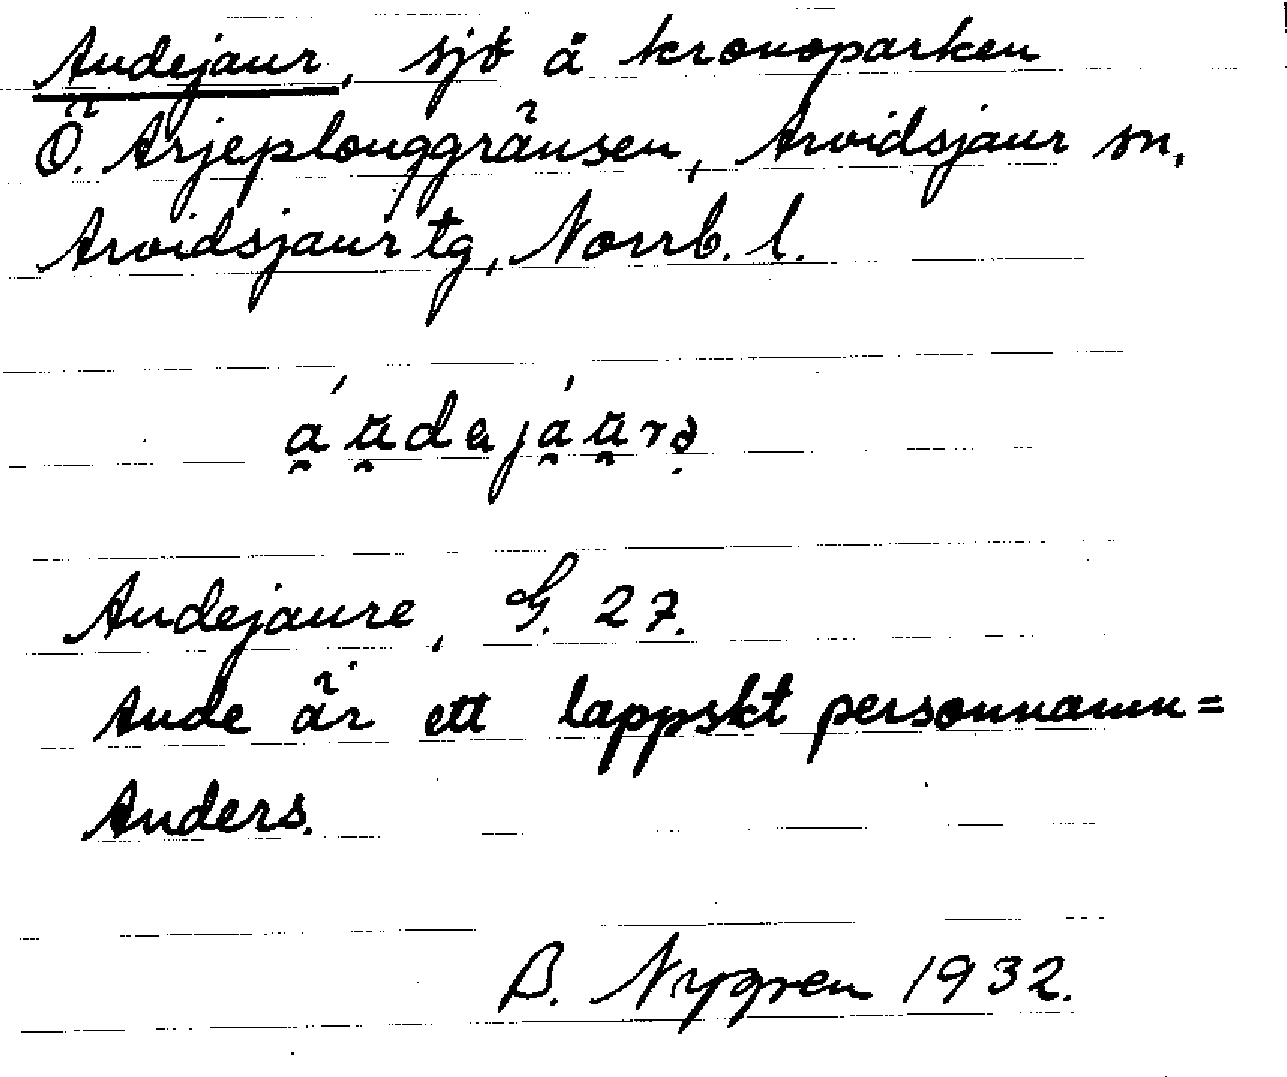 Audejaur, sjö å kronoparken
Ö. Arjeplouggränsen, Arvidsjaur sn,
Arvidsjaur tg, Norrb. l.
Audejaure, G. 27.
Aude är ett lappskt personnamn =
Anders.
B. Nygren 1932.